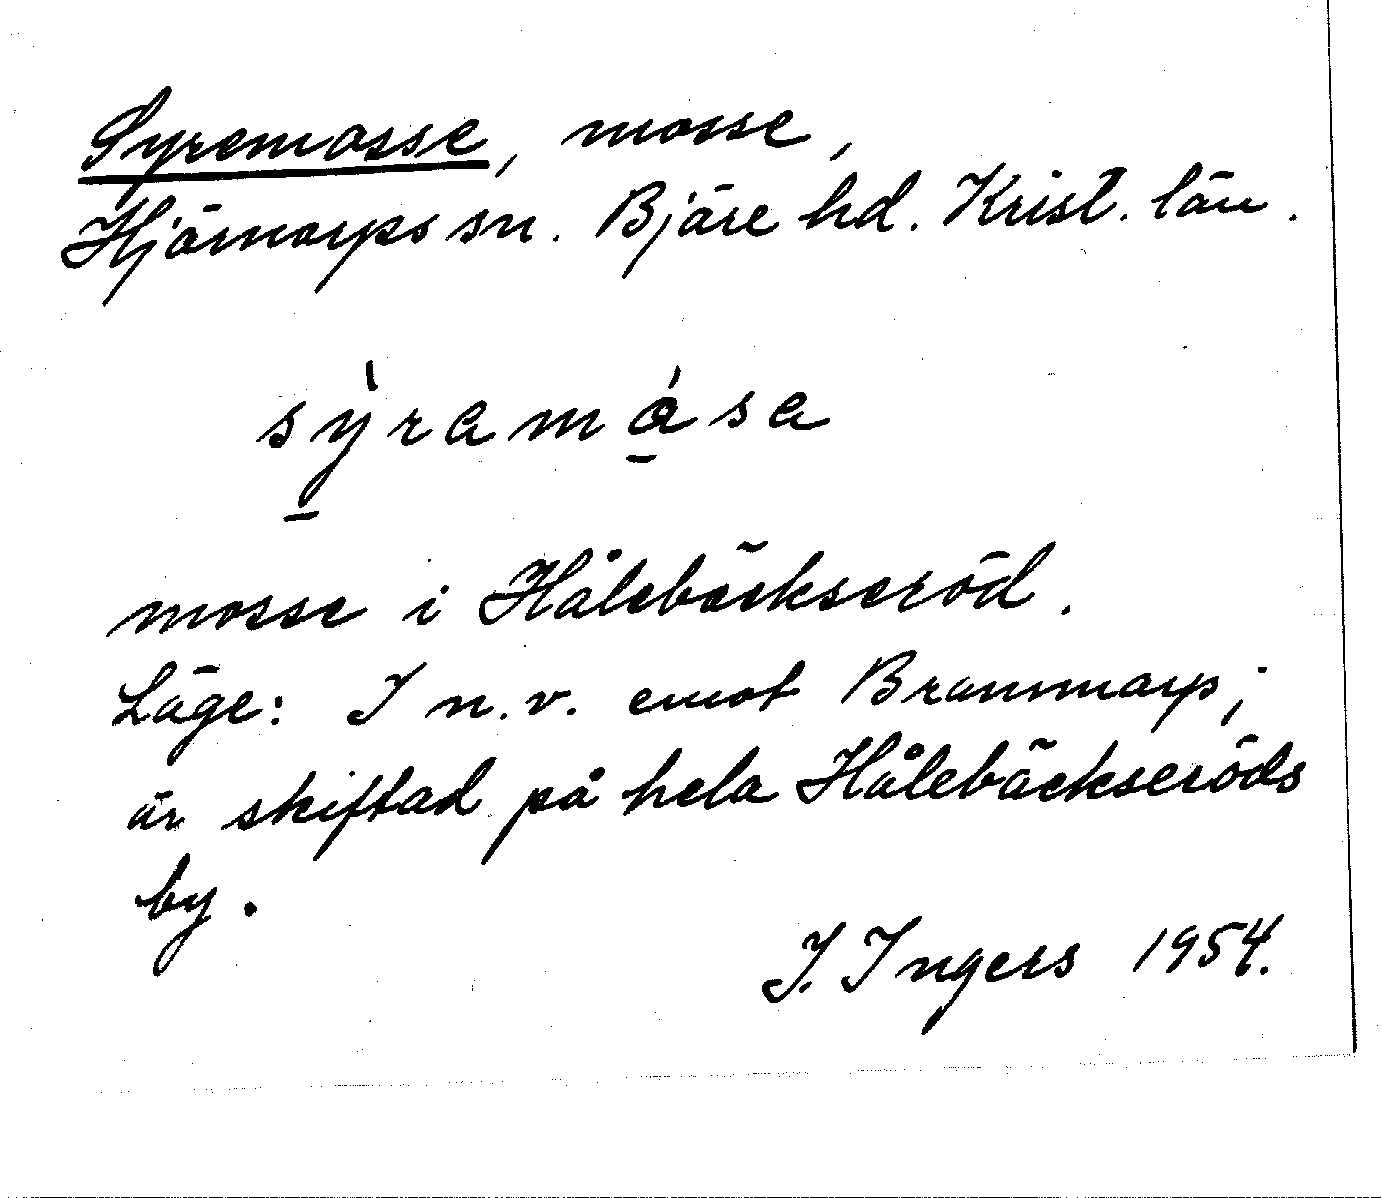 Syremosse, mosse,
Hjärnarps sn. Bjäre hd. Krist. län.
sỳramǻsa
mosse i Hålebäckseröd.
Läge: I n.v. emot Brammarp;
är skiftad på hela Hålebäckseröds
by.
I. Ingers 1954.